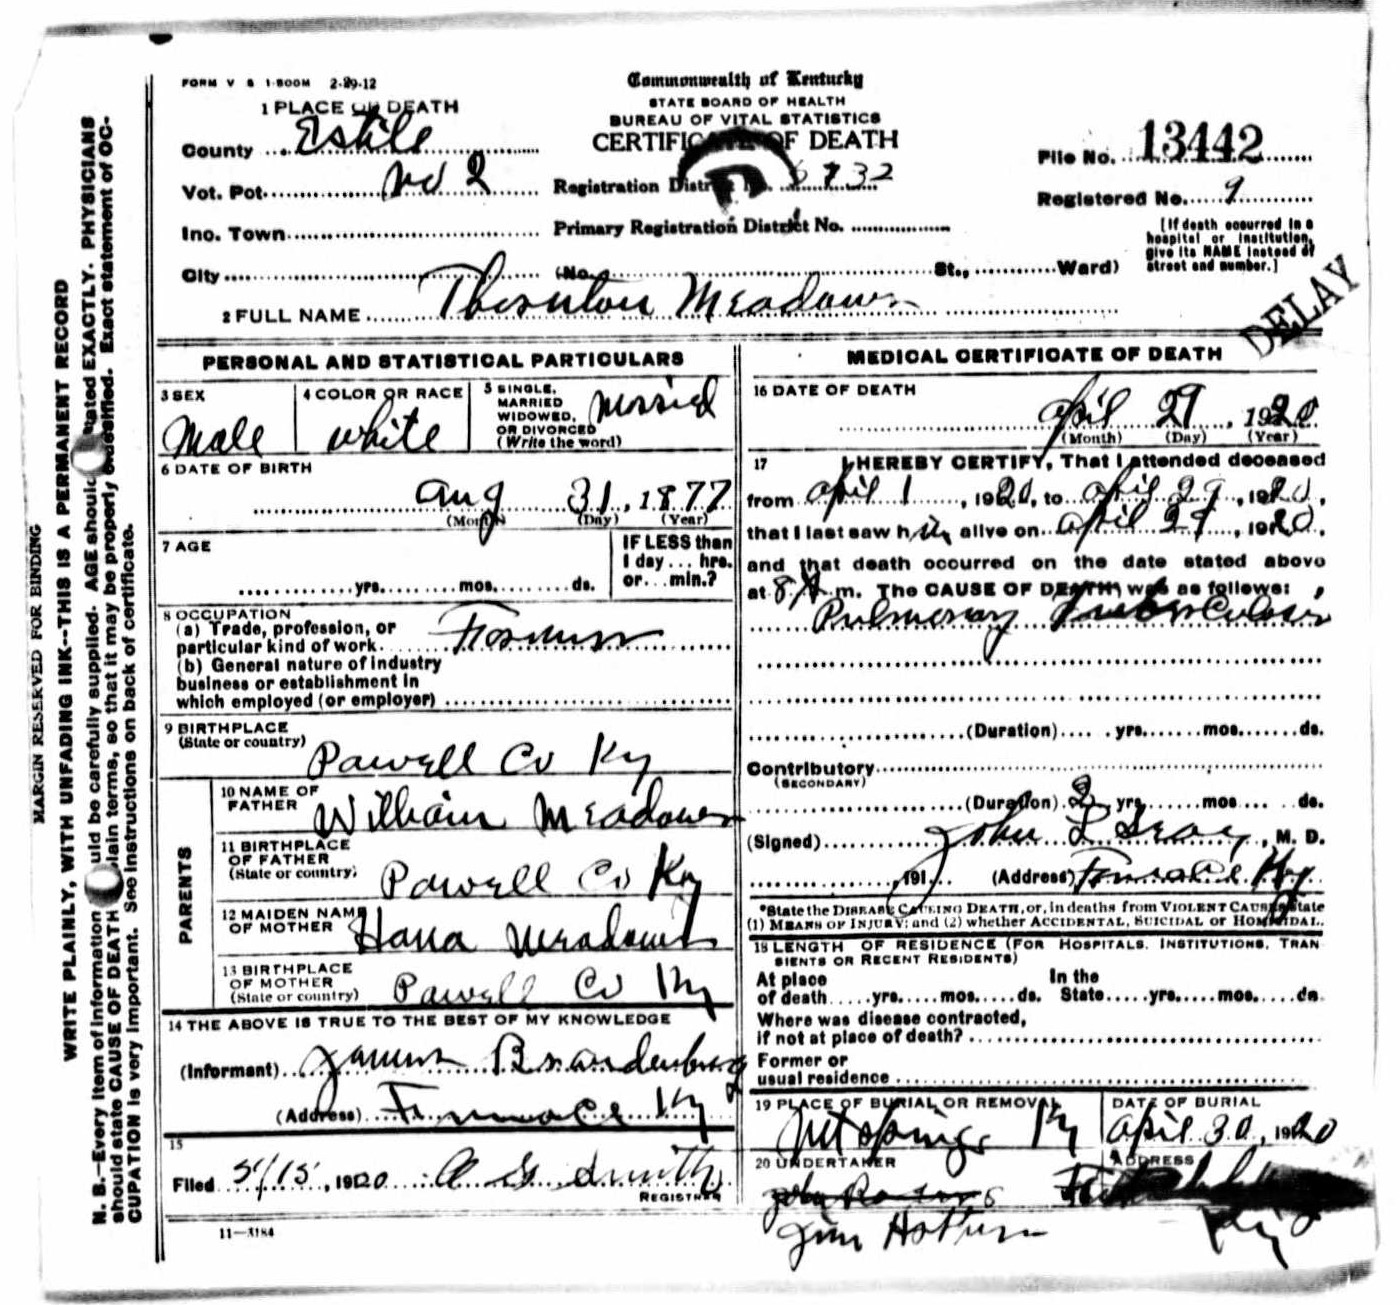 FORM V S 1-500M 2-29-12
Commonwealth of Kentucky
STATE BOARD OF HEALTH
BUREAU OF VITAL STATISTICS
CERTIFICATE OF DEATH
1 PLACE OF DEATH
County Estile
Vot. Pot. No 2
Ino. Town
City (No. St., Ward)
Registration District No. 6732
Primary Registration District No.
File No. 13442
Registered No. 9
[If death occurred in a
hospital or institution,
give its NAME instead of
street and number.]
2 FULL NAME Thornton Meadows
DELAY
PERSONAL AND STATISTICAL PARTICULARS
3 SEX
Male
4 COLOR OR RACE
white
5 SINGLE,
MARRIED
WIDOWED,
OR DIVORCED
(Write the word)
Married
6 DATE OF BIRTH
Aug 31, 1877
(Month) (Day) (Year)
7 AGE
yrs. mos. ds.
IF LESS than
1 day ... hrs.
or ... min.?
8 OCCUPATION
(a) Trade, profession, or
particular kind of work Farmer
(b) General nature of industry
business or establishment in
which employed (or employer)
9 BIRTHPLACE
(State or country)
Powell Co Ky
PARENTS
10 NAME OF
FATHER
William Meadows
11 BIRTHPLACE
OF FATHER
(State or country)
Powell Co Ky
12 MAIDEN NAME
OF MOTHER
Hana Meadows
13 BIRTHPLACE
OF MOTHER
(State or country)
Powell Co Ky
14 THE ABOVE IS TRUE TO THE BEST OF MY KNOWLEDGE
(Informant) Brandenburg
(Address) Furnace Ky
15
Filed 5/15, 1920 A G Smith
REGISTRAR
11—3184
MEDICAL CERTIFICATE OF DEATH
16 DATE OF DEATH
April 29, 1920
(Month) (Day) (Year)
17 I HEREBY CERTIFY, That I attended deceased
from April 1, 1920, to April 29, 1920,
that I last saw him alive on April 29, 1920,
and that death occurred on the date stated above
at 8 A m. The CAUSE OF DEATH was as follows:
Pulmonary Tuberculosis
(Duration) yrs. mos. ds.
Contributory
(SECONDARY)
(Duration) 2 yrs. mos. ds.
(Signed) John L , M. D.
, 191 (Address) Furnace Ky
*State the DISEASE CAUSING DEATH, or, in deaths from VIOLENT CAUSES, state
(1) MEANS OF INJURY; and (2) whether ACCIDENTAL, SUICIDAL or HOMICIDAL.
18 LENGTH OF RESIDENCE (FOR HOSPITALS, INSTITUTIONS, TRAN
SIENTS OR RECENT RESIDENTS)
At place In the
of death yrs. mos. ds. State yrs. mos. ds.
Where was disease contracted,
if not at place of death?
Former or
usual residence
19 PLACE OF BURIAL OR REMOVAL
Mt Springs Ky
DATE OF BURIAL
April 30, 1920
20 UNDERTAKER
ADDRESS
Jim
Ky
MARGIN RESERVED FOR BINDING
WRITE PLAINLY, WITH UNFADING INK--THIS IS A PERMANENT RECORD
N. B.—Every item of information should be carefully supplied. AGE should be stated EXACTLY. PHYSICIANS
should state CAUSE OF DEATH in plain terms, so that it may be properly classified. Exact statement of OC-
CUPATION is very important. See instructions on back of certificate.